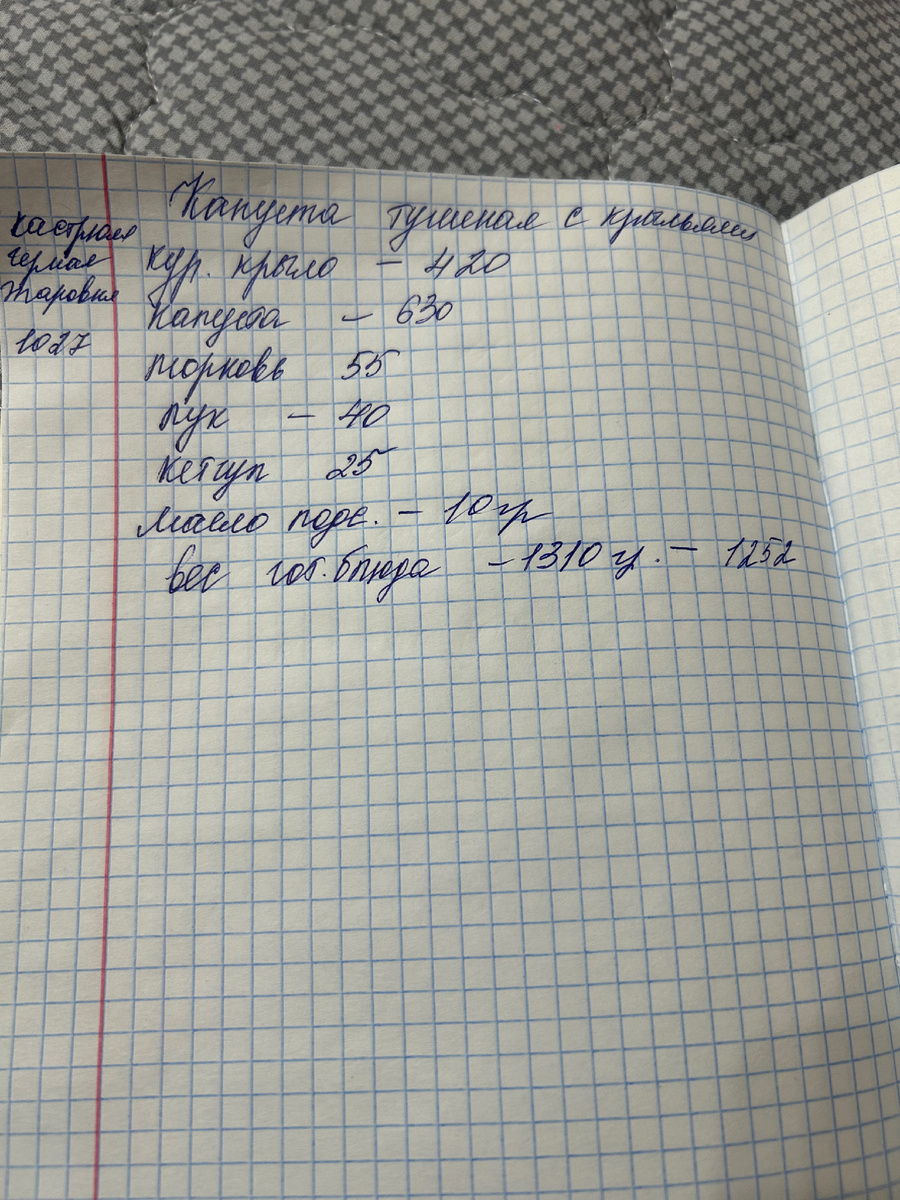 Капуста тушеная с крыльями
кастрюля
черная
жаровня
1027
кур. крыло – 420
капуста – 630
морковь 55
лук – 40
кетчуп 25
масло подс. – 10 гр
вес гот. блюда – 1310 г. – 1252